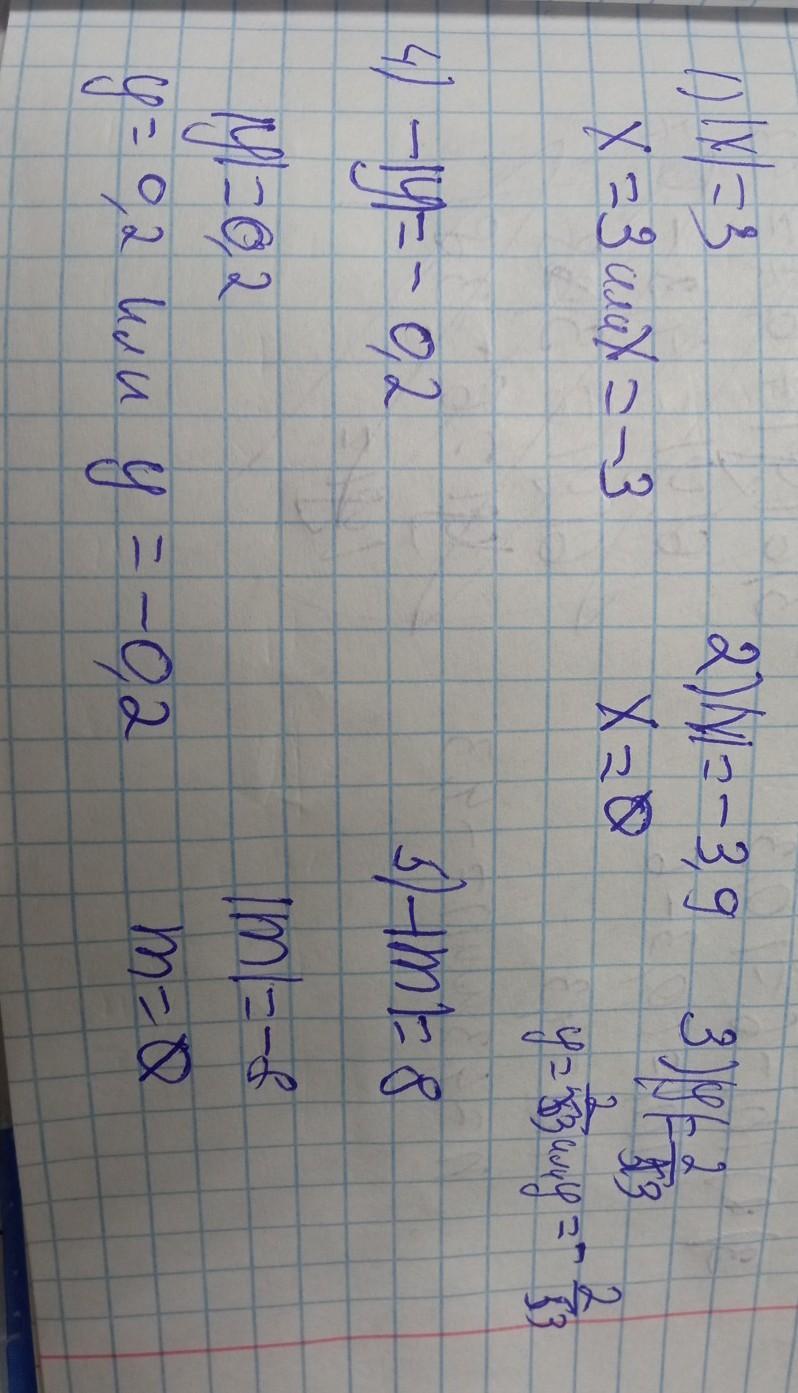 1) |x| = 3
x = 3 или x = -3
2) |x| = -3,9
x = ∅
3) |y| = 2/13
y = 2/13 или y = -2/13
4) -|y| = -0,2
|y| = 0,2
y = 0,2 или y = -0,2
5) -|m| = 8
|m| = -8
m = ∅